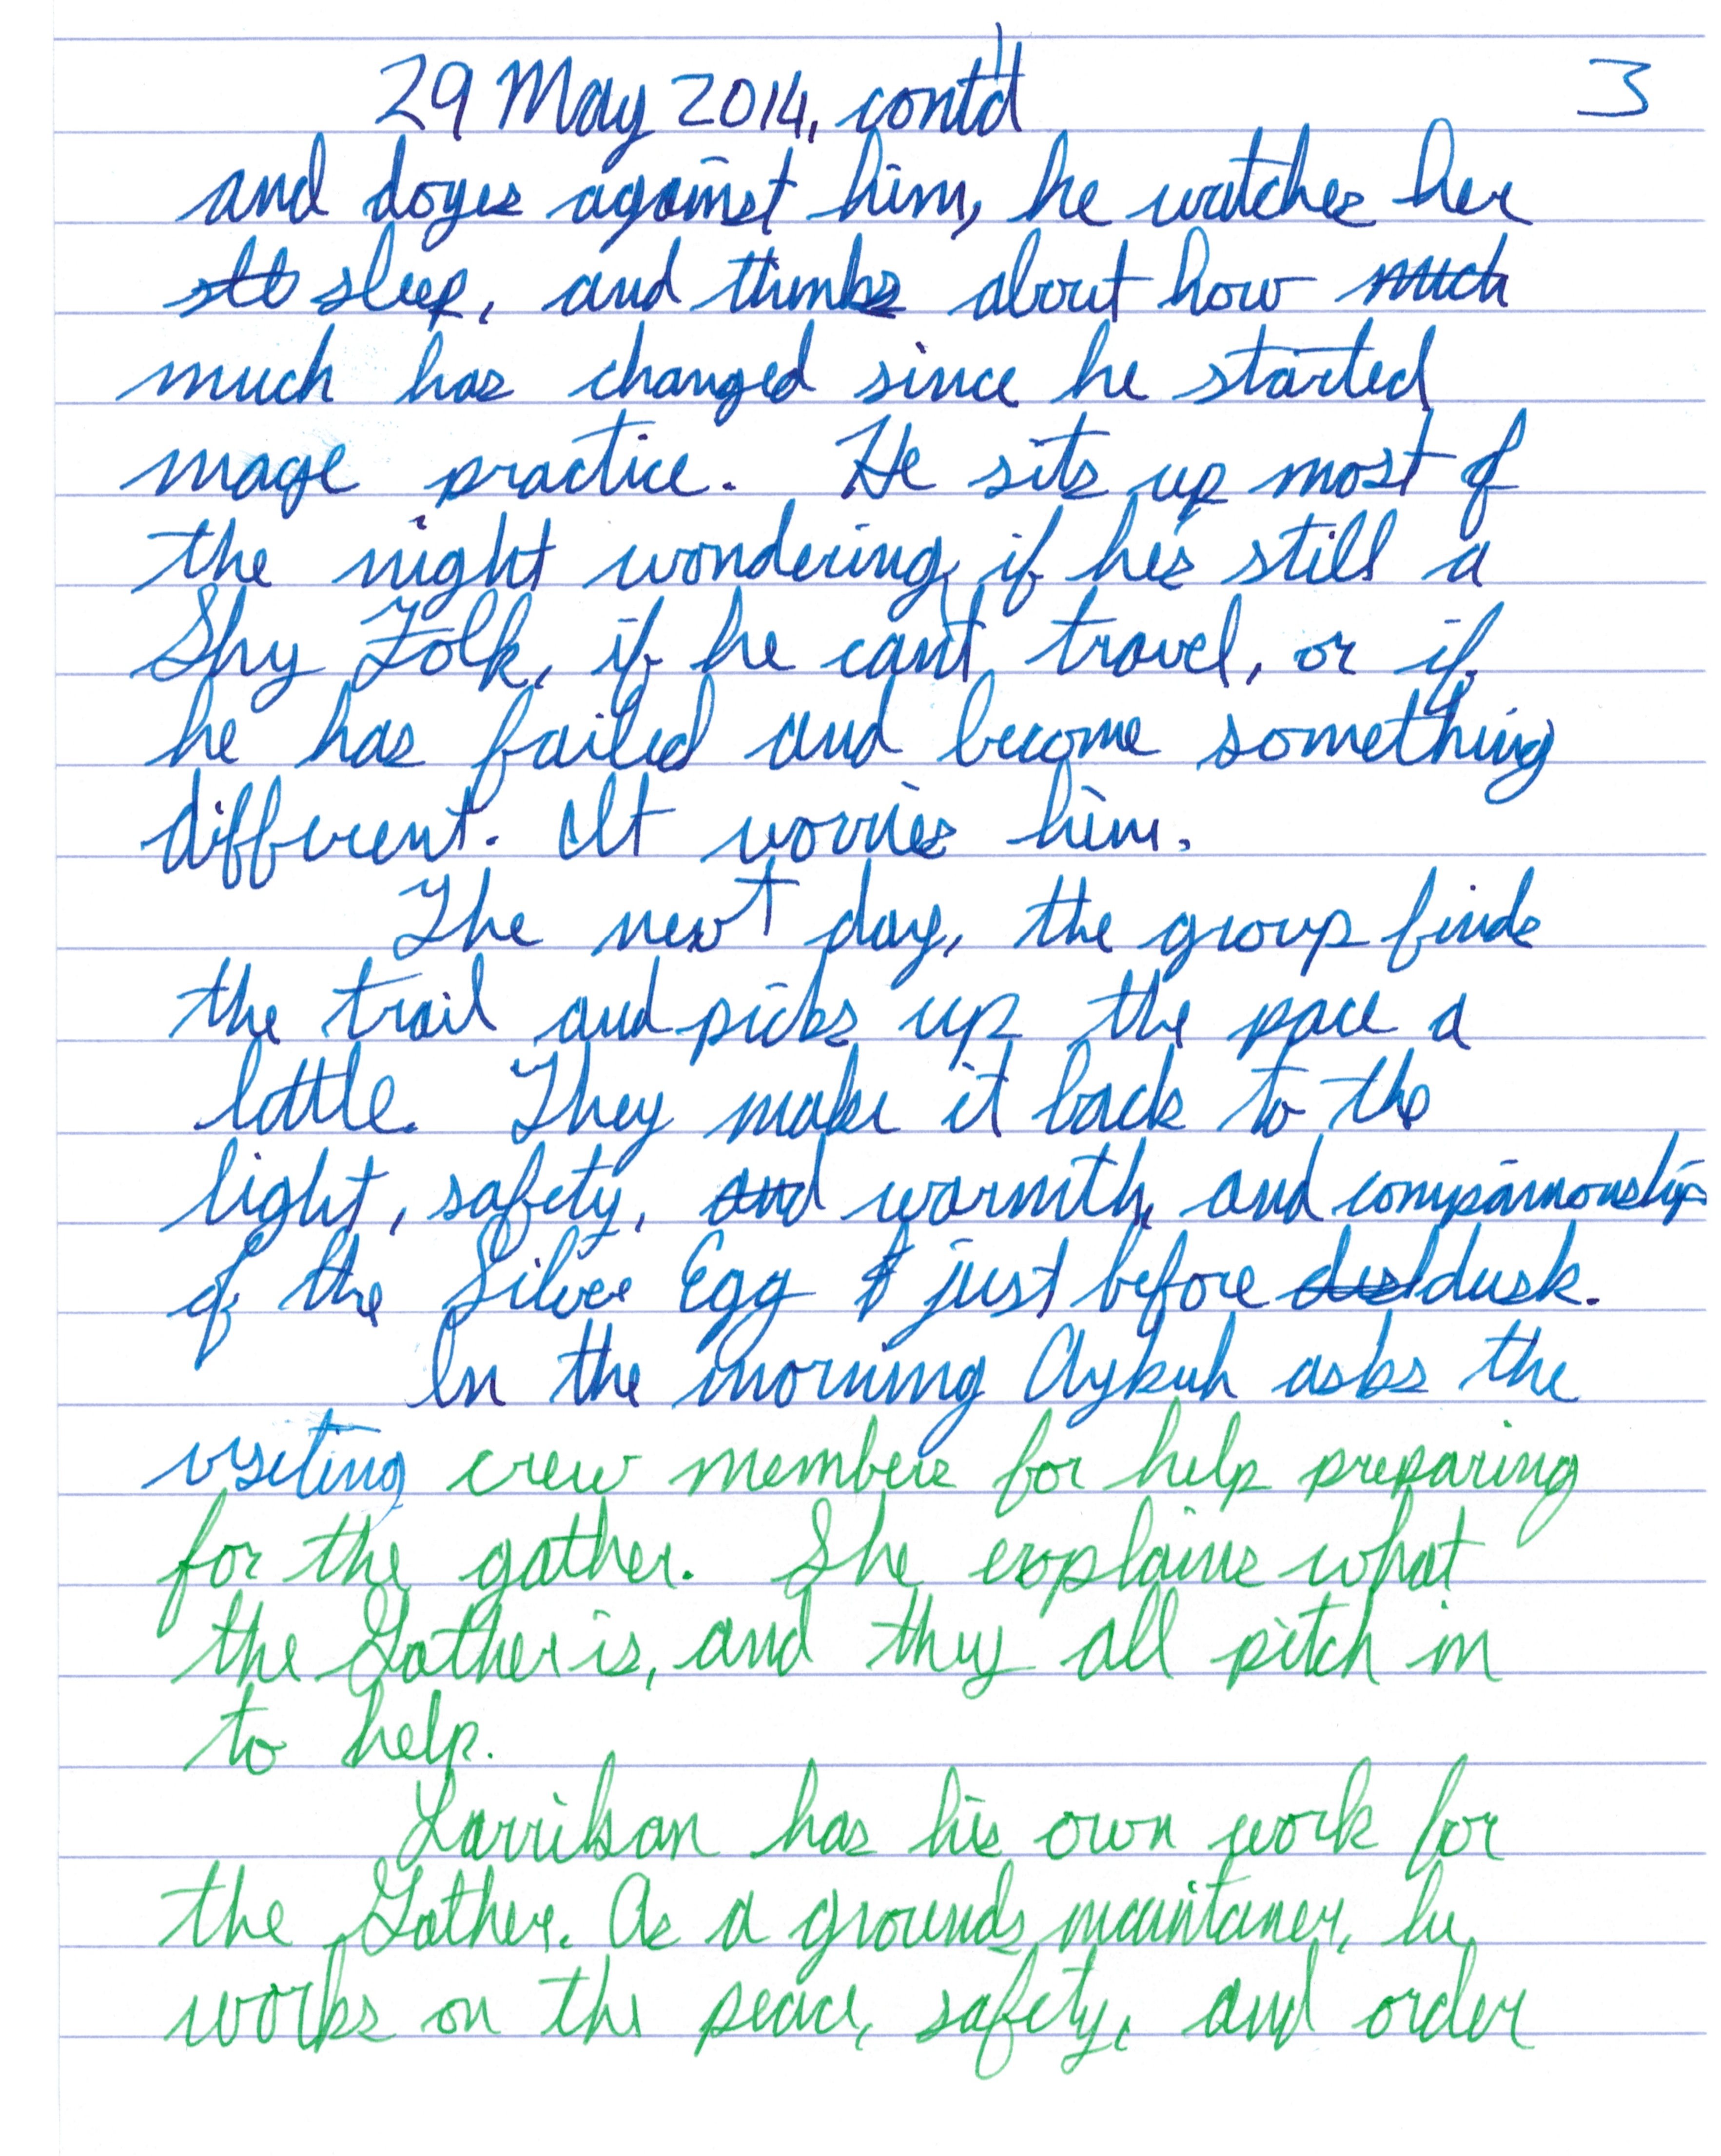 29 May 2014, cont'd 3
and dozes against him, he watches her
sle sleep, and thinks about how much
much has changed since he started
mage practice. He sits up most of
the night wondering if he's still a
Shy Folk, if he can't travel, or if
he has failed and become something
different. It worries him.
The next day, the group finds
the trail and picks up the pace a
little. They make it back to the
light, safety, and warmth, and companionship
of the Silver Egg just before dusk.
In the morning Aykuh asks the
visiting crew members for help preparing
for the gather. She explains what
the Gather is, and they all pitch in
to help.
Larriksan has his own work for
the Gather. As a grounds maintainer, he
works on the peace, safety, and order